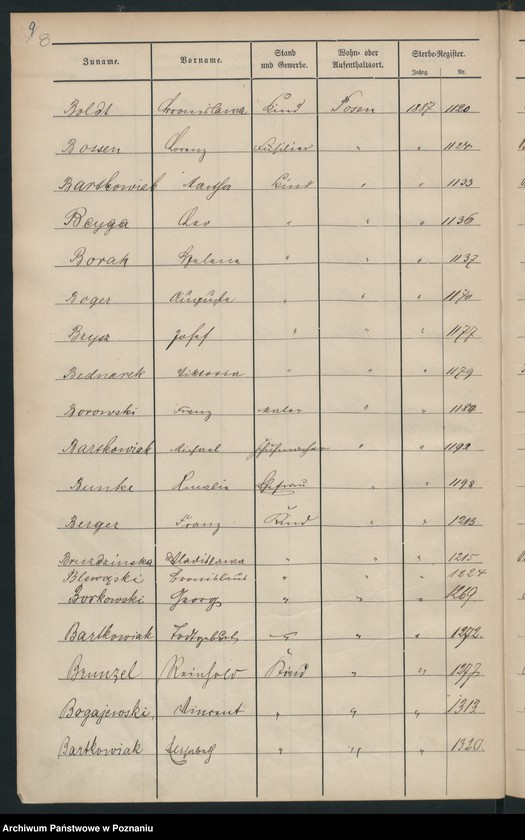 9
8
Zuname. Vorname. Stand und Gewerbe. Wohn- oder Aufenthaltsort. Sterbe-Register.
Jahrg. Nr.
Boldt Bronislawa Kind Posen 1887 1120
Bossen Lorenz Füsilier " " 1124
Bartkowiak Martha Kind " " 1133
Beyga Leo " " " 1136
Borak Helene " " " 1137
Boger Auguste " " " 1170
Brysz Josef " " " 1177
Bednarek Viktoria " " " 1179
Borowski Franz Maler " " 1180
Bartkowiak Michael Schuhmacher " " 1192
Bunke Amalie Ehefrau " " 1198
Berger Franz Kind " " 1213
Wladislawa " " " 1215
Bronislaus " " " 1224
Borkowski Georg " " " 1269
Bartkowiak Todtgeburt — " " 1272.
Brunzel Reinhold Kind " " 1277
Bogajewski, Vincent " " " 1313
Bartkowiak " " " 1320.
Archiwum Państwowe w Poznaniu